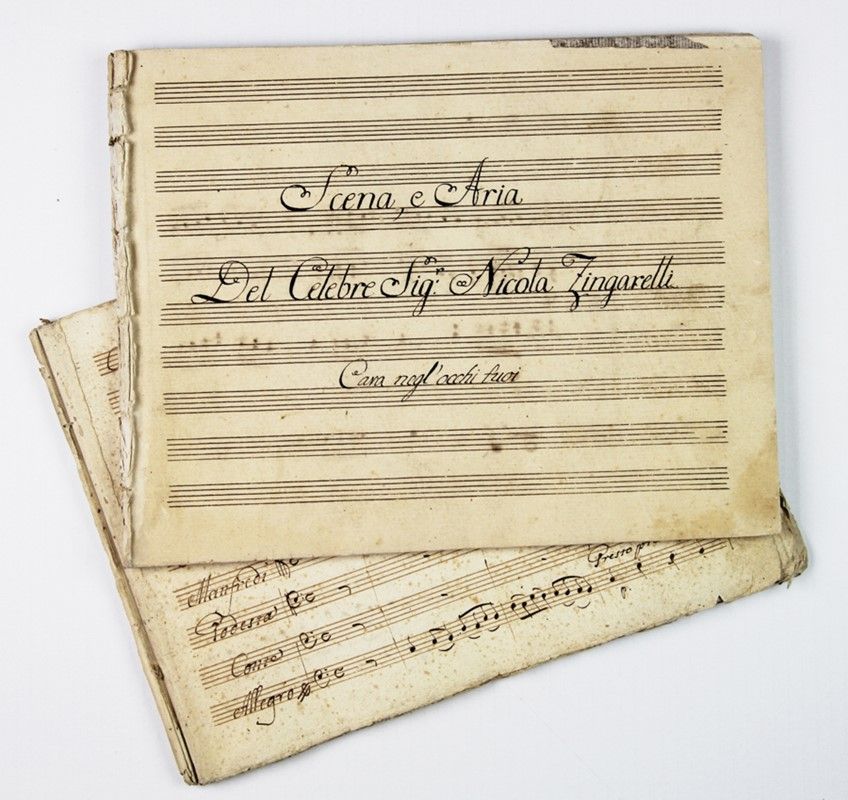 Scena, e Aria
Del Celebre Sigr. Nicola Zingarelli
Cara negl'occhi tuoi
Presto
Manfredi
Podestà
Conte
Allegro